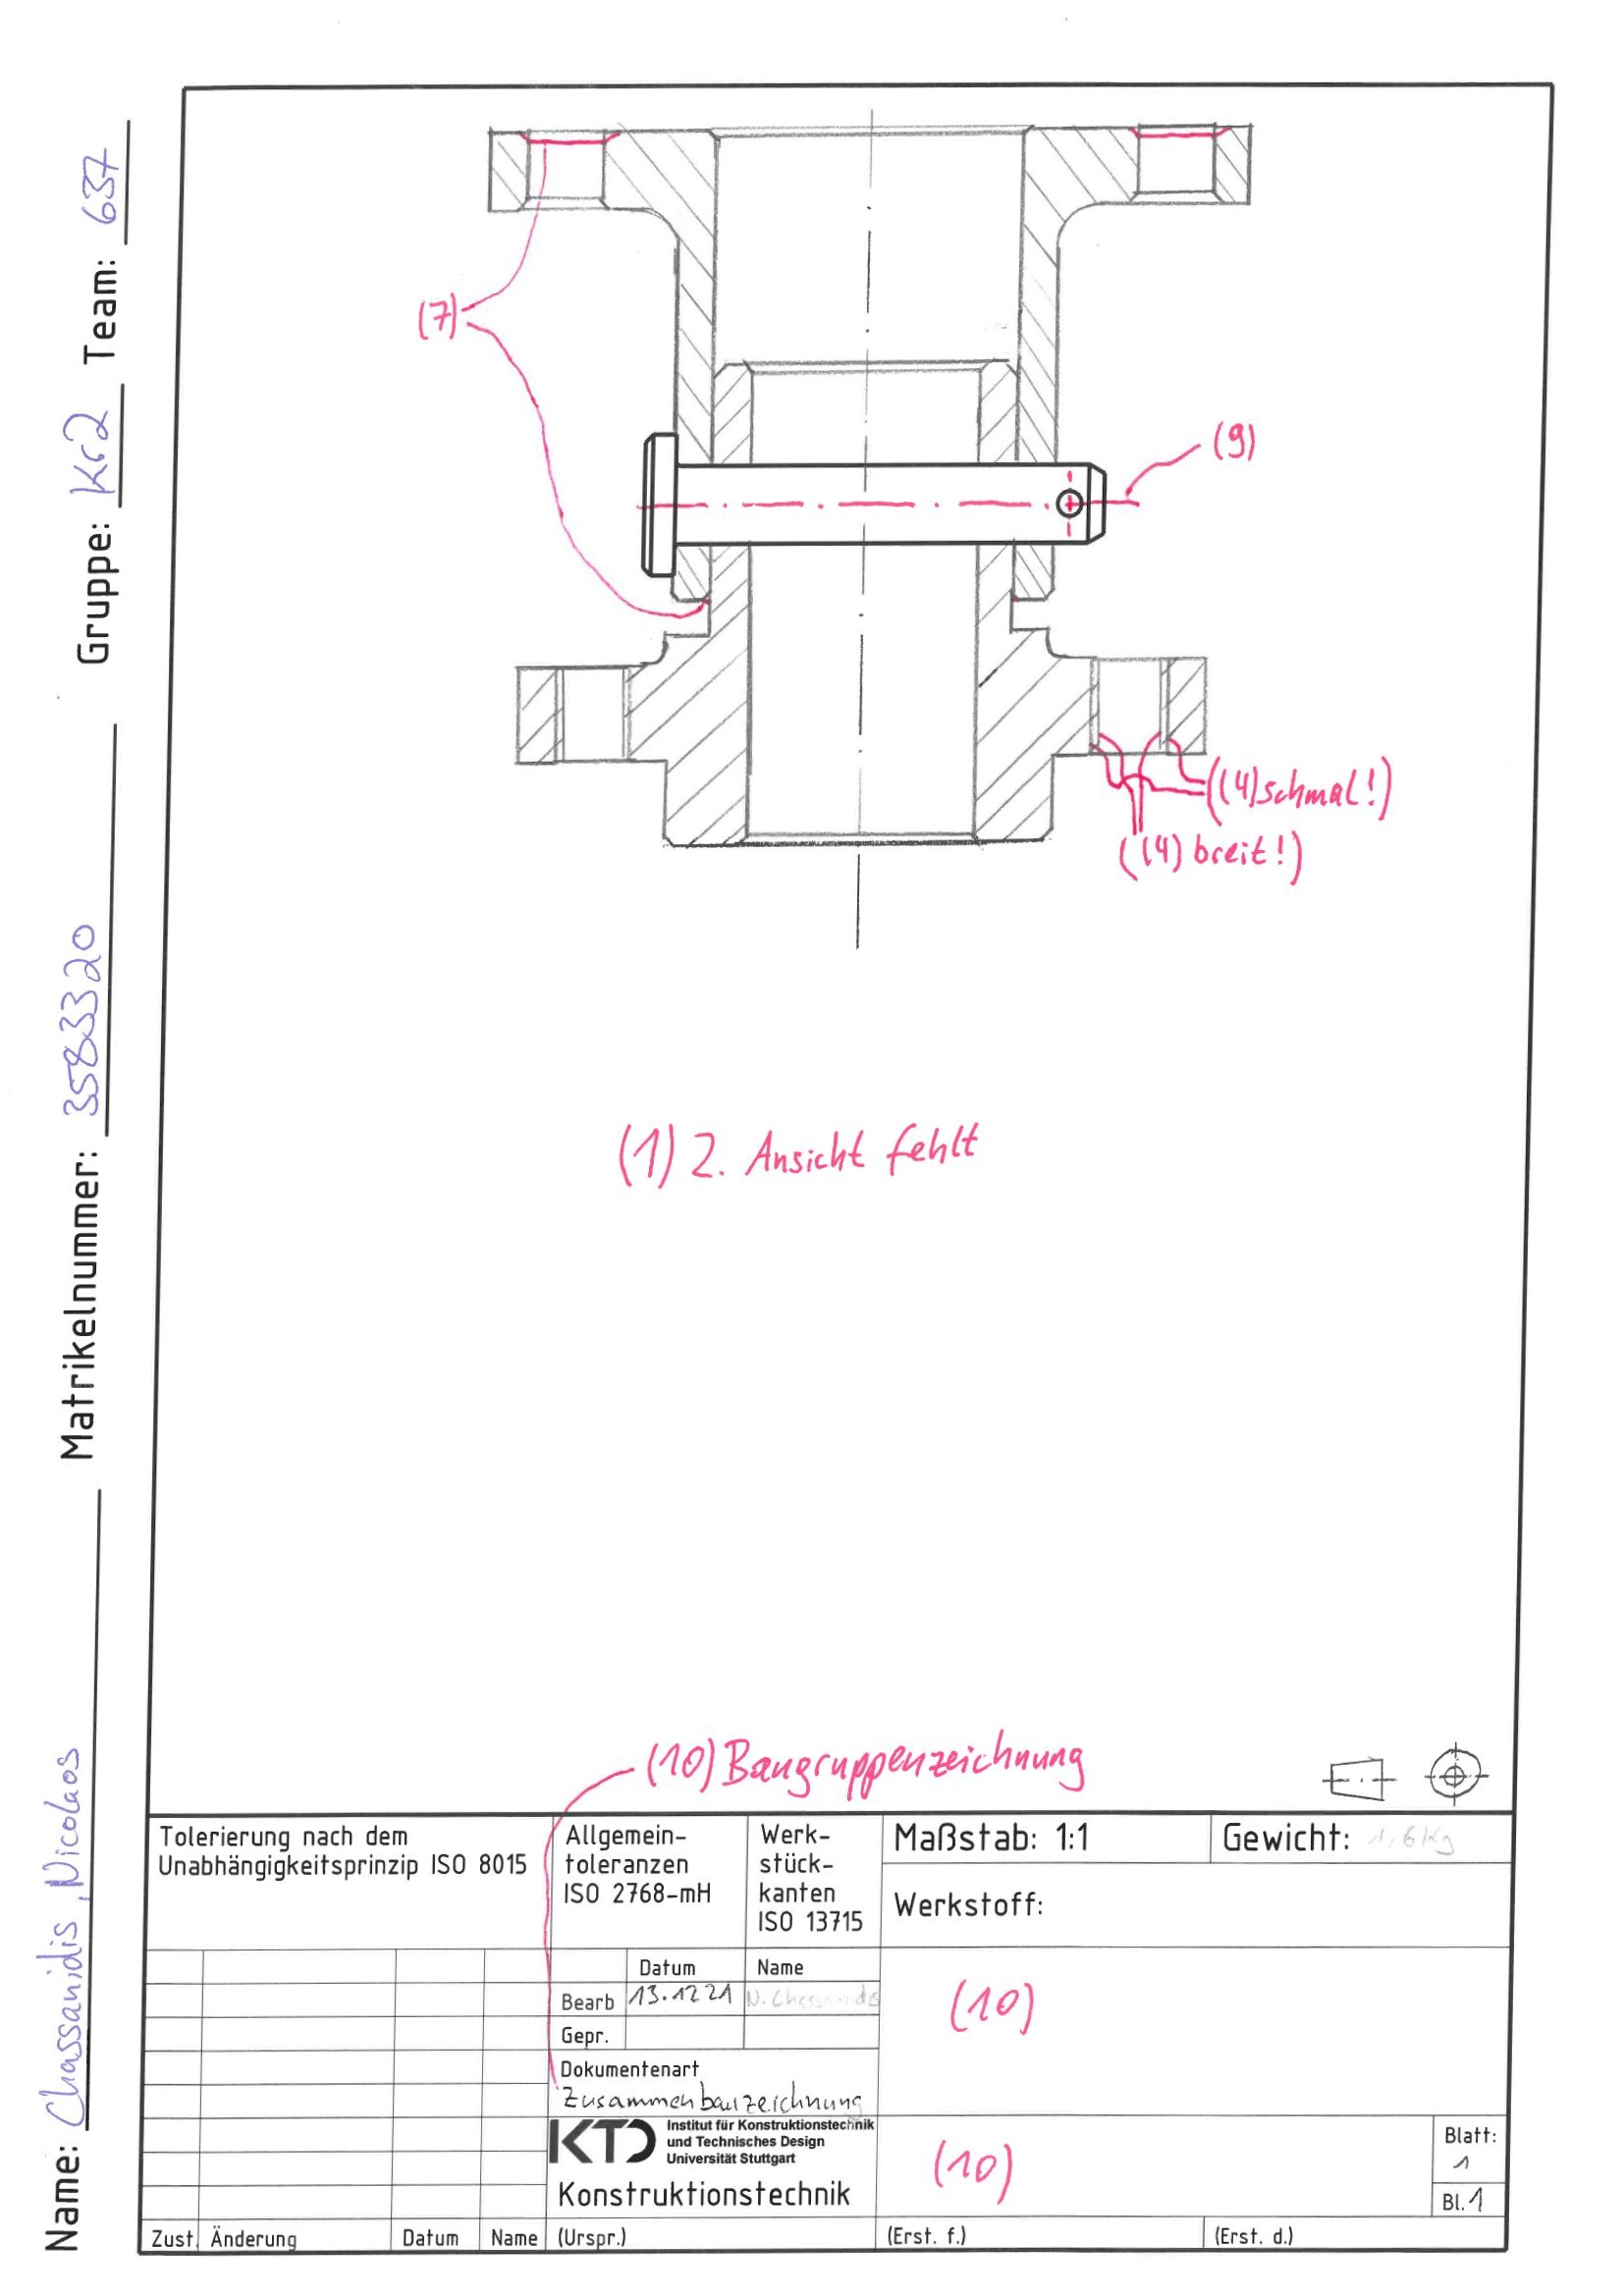 Name: Chassanidis, Nicolaos Matrikelnummer: 3583320 Gruppe: KG2 Team: 637
(7)
(9)
((4) schmal!)
((4) breit!)
(1) 2. Ansicht fehlt
(10) Baugruppenzeichnung
Tolerierung nach dem
Unabhängigkeitsprinzip ISO 8015
Allgemein-
toleranzen
ISO 2768-mH
Werk-
stück-
kanten
ISO 13715
Maßstab: 1:1
Gewicht: 1,6Kg
Werkstoff:
Datum Name
Bearb 13.12 21 N. Chassanidis
Gepr.
(10)
Dokumentenart
Zusammenbauzeichnung
KTD
Institut für Konstruktionstechnik
und Technisches Design
Universität Stuttgart
Konstruktionstechnik
(10)
Blatt:
1
Bl. 1
Zust. Änderung Datum Name (Urspr.) (Erst. f.) (Erst. d.)